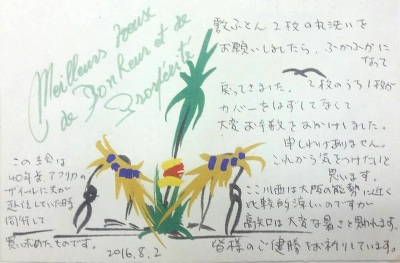 Meilleurs voeux
de Bonheur et de
Prospérité
敷ふとん 2枚の丸洗いを
お願いしましたら、ふかふかに
なって
戻ってきました。 2枚のうち1枚が
カバーをはずしてなくて
大変お手数をおかけしました。
申しわけありません。
これから気をつけたいと
思います。
ここ川西は大阪の能勢に近く
比較的涼しいのですが
高知は大変な暑さと思われます。
皆様のご健勝をお祈りしています。
この絵は
40年前、アフリカの
ザイールに夫が
赴任していた時
同行して
買い求めたものです。
2016.8.2